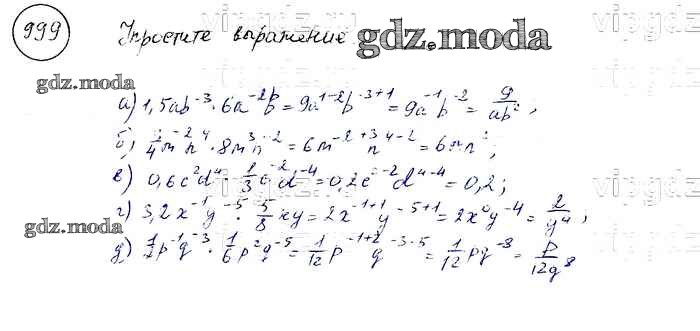 999 Упростите выражение gdz.moda
gdz.moda
а) 1,5ab⁻³ · 6a⁻²b = 9a¹⁻²b⁻³⁺¹ = 9a⁻¹b⁻² = 9/ab²,
б) 3/4m⁻²n⁴ · 8m³n⁻² = 6m⁻²⁺³n⁴⁻² = 6mn²;
в) 0,6c²d⁴ · 1/3c⁻²d⁻⁴ = 0,2c²⁻²d⁴⁻⁴ = 0,2;
gdz.moda
г) 3,2x⁻¹y⁻⁵ · 5/8xy = 2x⁻¹⁺¹y⁻⁵⁺¹ = 2x⁰y⁻⁴ = 2/y⁴,
д) 1/2p⁻¹q⁻³ · 1/6p²q⁻⁵ = 1/12p⁻¹⁺²q⁻³⁻⁵ = 1/12pq⁻⁸ = p/12q⁸
gdz.moda